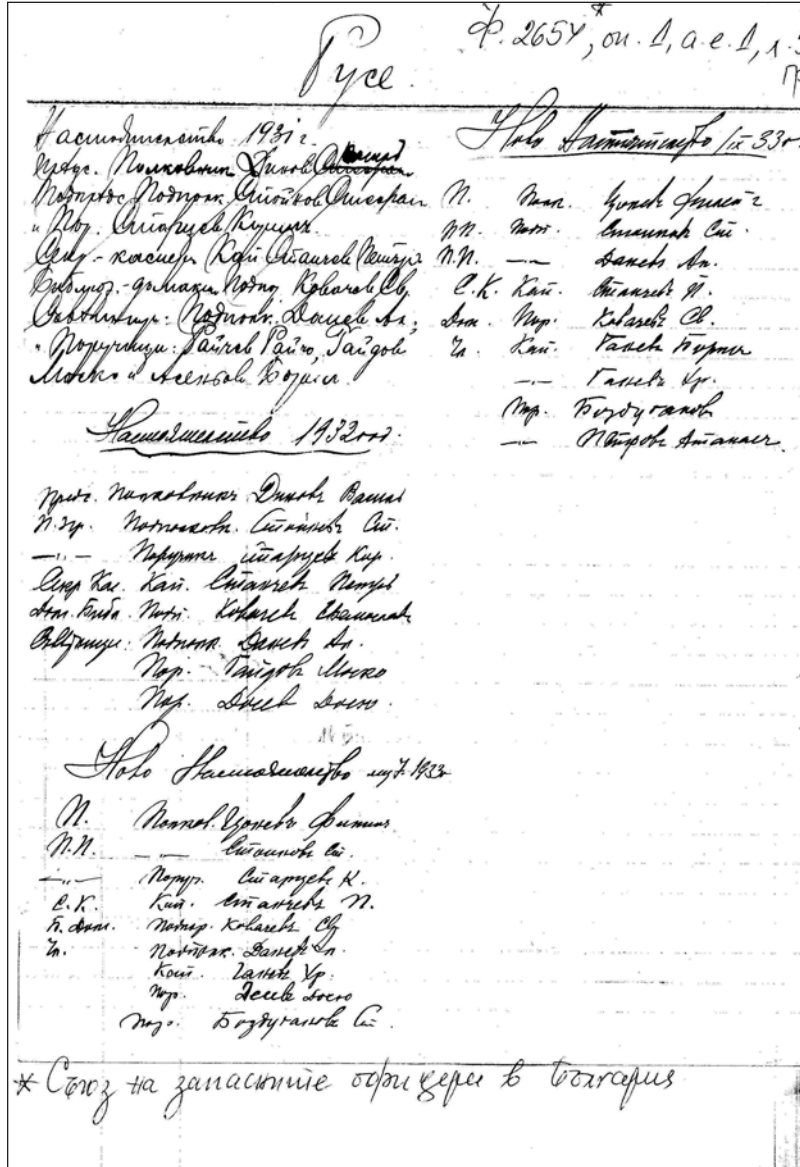 Ф. 2654*, оп. 1, а.е. 1, л.
Русе.
Настоятелство 1931 г.
Предс. Полковник Динов Васил
Подпредс. Подполк. Стойков
" Пор. Старцев
Секр.-касиер Кап. Станчев Петър
Подпор. Ковачев Св.
Съветници: Подполк. Данев Ап.,
" Поручици: Райчев Райчо, Гайдов
Моско и
Настоятелство 1932 год.
Предс. Полковникъ Диновъ Василъ
П. Пр. Подполковн. Стойковъ Ст.
—"— Поручикъ Старцев Кир.
Секр. Кас. Кап. Станчевъ Петъръ
Дом. Библ. Подп. Ковачевъ Светославъ
Съветници: Подполк. Даневъ Ап.
Пор. Гайдовъ Моско
Пор. Досев Досю.
Ново Настоятелство 1933
П. Полков. Цоневъ Филипъ
П.П. —"— Стоиковъ Ст.
—"— Поруч. Старцевъ К.
С.К. Кап. Станчевъ П.
Б. Дом. Подпор. Ковачевъ Св.
Чл. Подполк. Даневъ Ап.
Кап. Ганевъ Хр.
Пор. Досю
Пор. Боздугановъ Ст.
Ново Настоятелство IX 33 г.
П. Полк. Цоневъ Филипъ
ПП. Подп. Стоиковъ Ст.
П.П. —"— Даневъ Ап.
С.К. Кап. Станчевъ П.
Дом. Пор. Ковачевъ Св.
Чл. Кап. Ганевъ
—"— Ганевъ Хр.
Пор. Боздугановъ
—"— Петровъ Атанасъ
* Съюз на запасните офицери в България